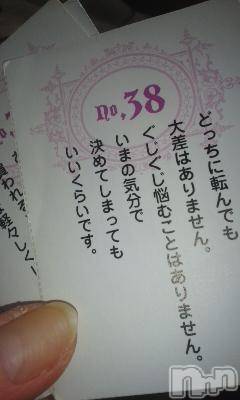 no,38
どっちに転んでも
大差はありません。
ぐじぐじ悩むことはありません。
いまの気分で
決めてしまっても
いいくらいです。
軽々しく!